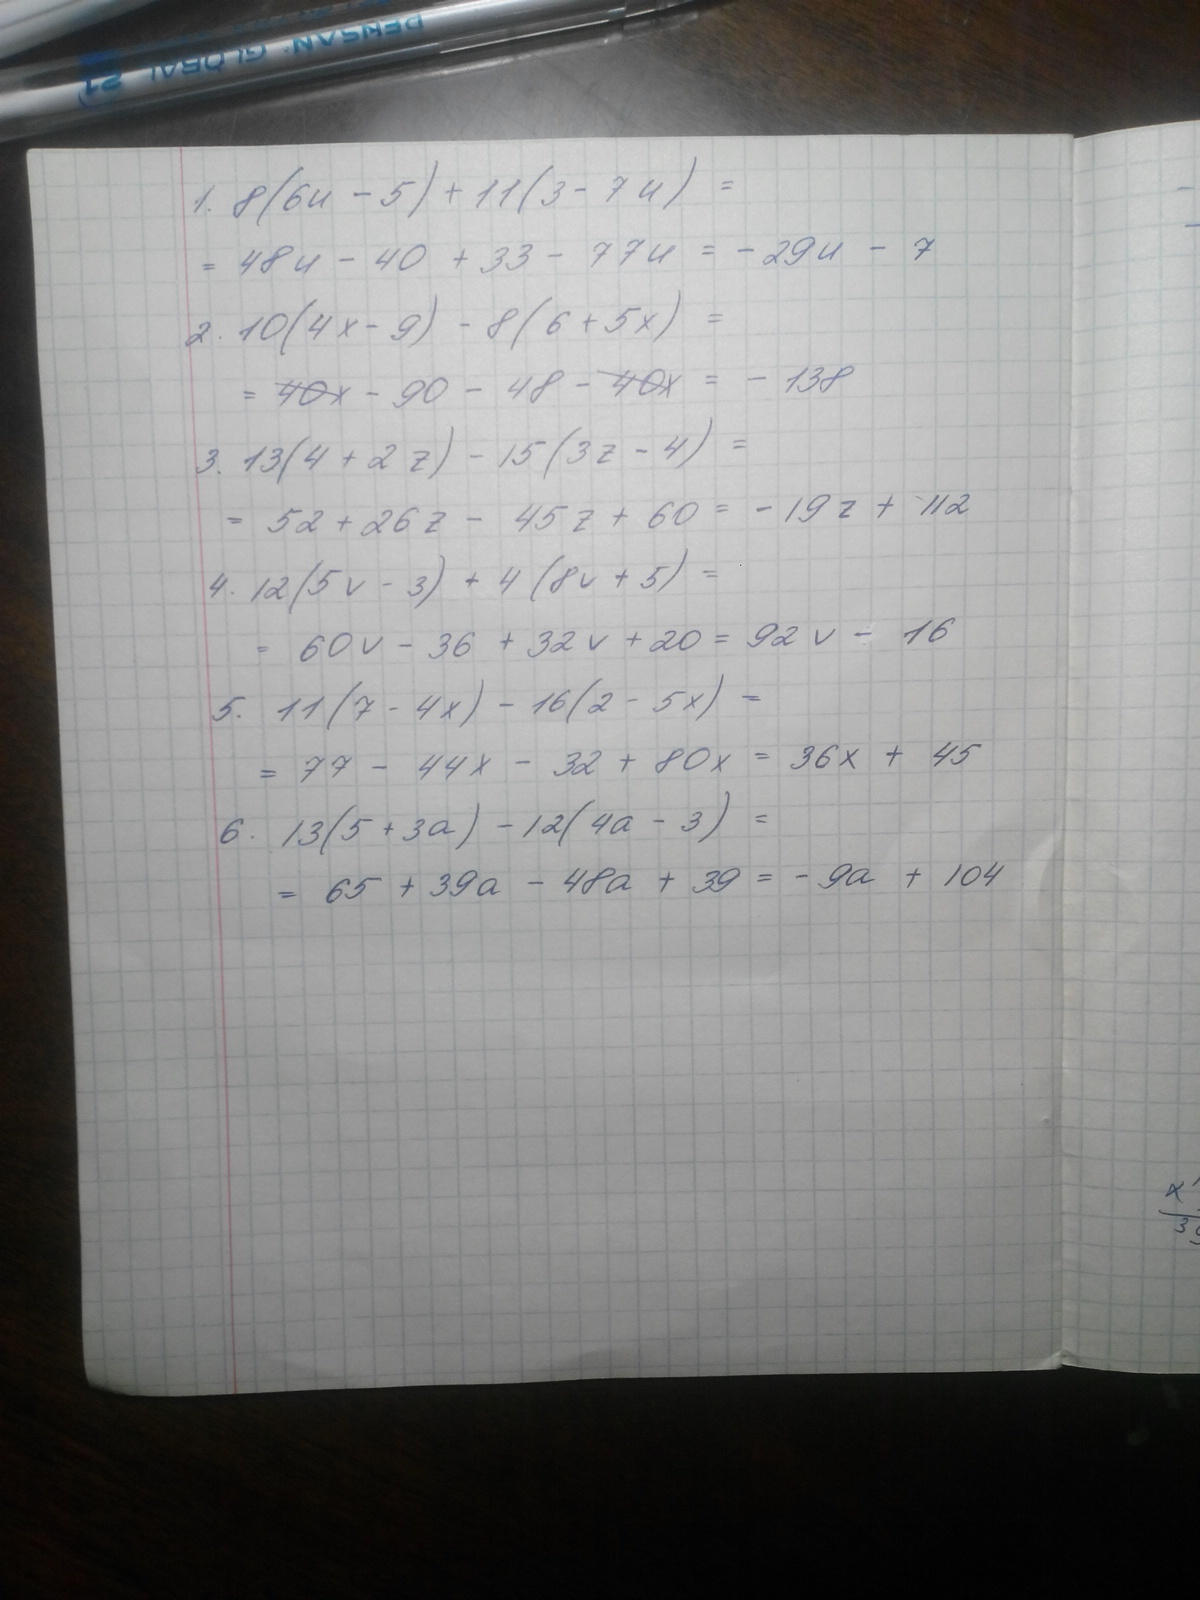 DENSAN GLOBAL 21
1. 8(6u - 5) + 11(3 - 7u) =
= 48u - 40 + 33 - 77u = - 29u - 7
2. 10(4x - 9) - 8(6 + 5x) =
= 40x - 90 - 48 - 40x = - 138
3. 13(4 + 2z) - 15(3z - 4) =
= 52 + 26z - 45z + 60 = - 19z + 112
4. 12(5v - 3) + 4(8v + 5) =
= 60v - 36 + 32v + 20 = 92v - 16
5. 11(7 - 4x) - 16(2 - 5x) =
= 77 - 44x - 32 + 80x = 36x + 45
6. 13(5 + 3a) - 12(4a - 3) =
= 65 + 39a - 48a + 39 = - 9a + 104